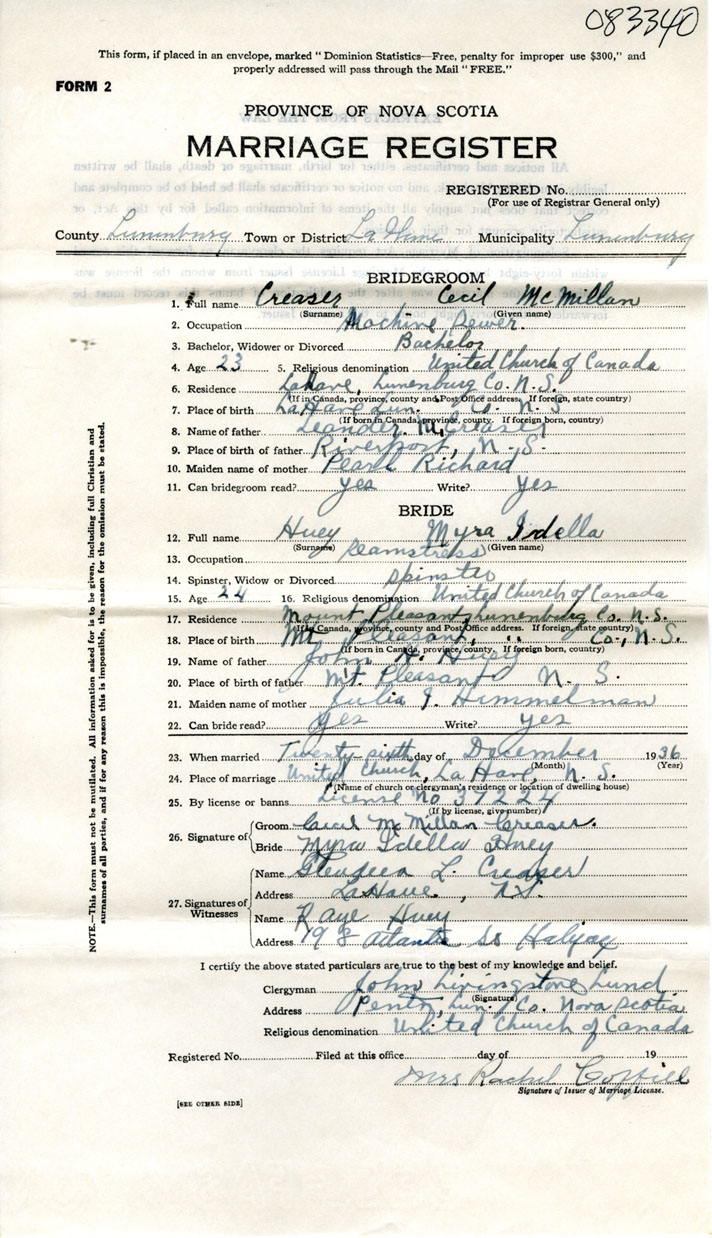 083340
This form, if placed in an envelope, marked "Dominion Statistics—Free, penalty for improper use $300," and
properly addressed will pass through the Mail "FREE."
FORM 2
PROVINCE OF NOVA SCOTIA
MARRIAGE REGISTER
REGISTERED No.
(For use of Registrar General only)
County Lunenburg Town or District La Have Municipality Lunenburg
BRIDEGROOM
1. Full name Creaser Cecil McMillan
(Surname) (Given name)
2. Occupation Machine Sewer
3. Bachelor, Widower or Divorced Bachelor
4. Age 23 5. Religious denomination United Church of Canada
6. Residence LaHave, Lunenburg Co. N.S.
(If in Canada, province, county and Post Office address. If foreign, state country)
7. Place of birth LaHave Lun. Co. N.S.
(If born in Canada, province, county. If foreign born, country)
8. Name of father Leander M. Creaser
9. Place of birth of father Riverport, N.S.
10. Maiden name of mother Pearl Richard
11. Can bridegroom read? yes Write? yes
BRIDE
12. Full name Huey Myra Idella
(Surname) (Given name)
13. Occupation Seamstress
14. Spinster, Widow or Divorced Spinster
15. Age 24 16. Religious denomination United Church of Canada
17. Residence Mount Pleasant, Lunenburg Co. N.S.
(If in Canada, province, county and Post Office address. If foreign, state country)
18. Place of birth Mt. Pleasant, " Co., N.S.
(If born in Canada, province, county. If foreign born, country)
19. Name of father John H. Huey
20. Place of birth of father Mt. Pleasant N.S.
21. Maiden name of mother Julia J. Himmelman
22. Can bride read? yes Write? yes
23. When married Twenty-sixth day of December 1936
(Month) (Year)
24. Place of marriage United Church, La Have, N.S.
(Name of church or clergyman's residence or location of dwelling house)
25. By license or banns License No 37224
(If by license, give number)
26. Signature of Groom Cecil McMillan Creaser.
Bride Myra Idella Huey
27. Signatures of Witnesses
Name L. Creaser
Address LaHave, N.S.
Name Raye Huey
Address Atlantic St Halifax
I certify the above stated particulars are true to the best of my knowledge and belief.
Clergyman John Livingstone Lund
(Signature)
Address Pentz, Lun. Co. Nova Scotia
Religious denomination United Church of Canada
Registered No. Filed at this office day of 19
Mrs Rachel
Signature of Issuer of Marriage License.
[SEE OTHER SIDE]
NOTE.—This form must not be mutilated. All information asked for is to be given, including full Christian and
surnames of all parties, and if for any reason this is impossible, the reason for the omission must be stated.